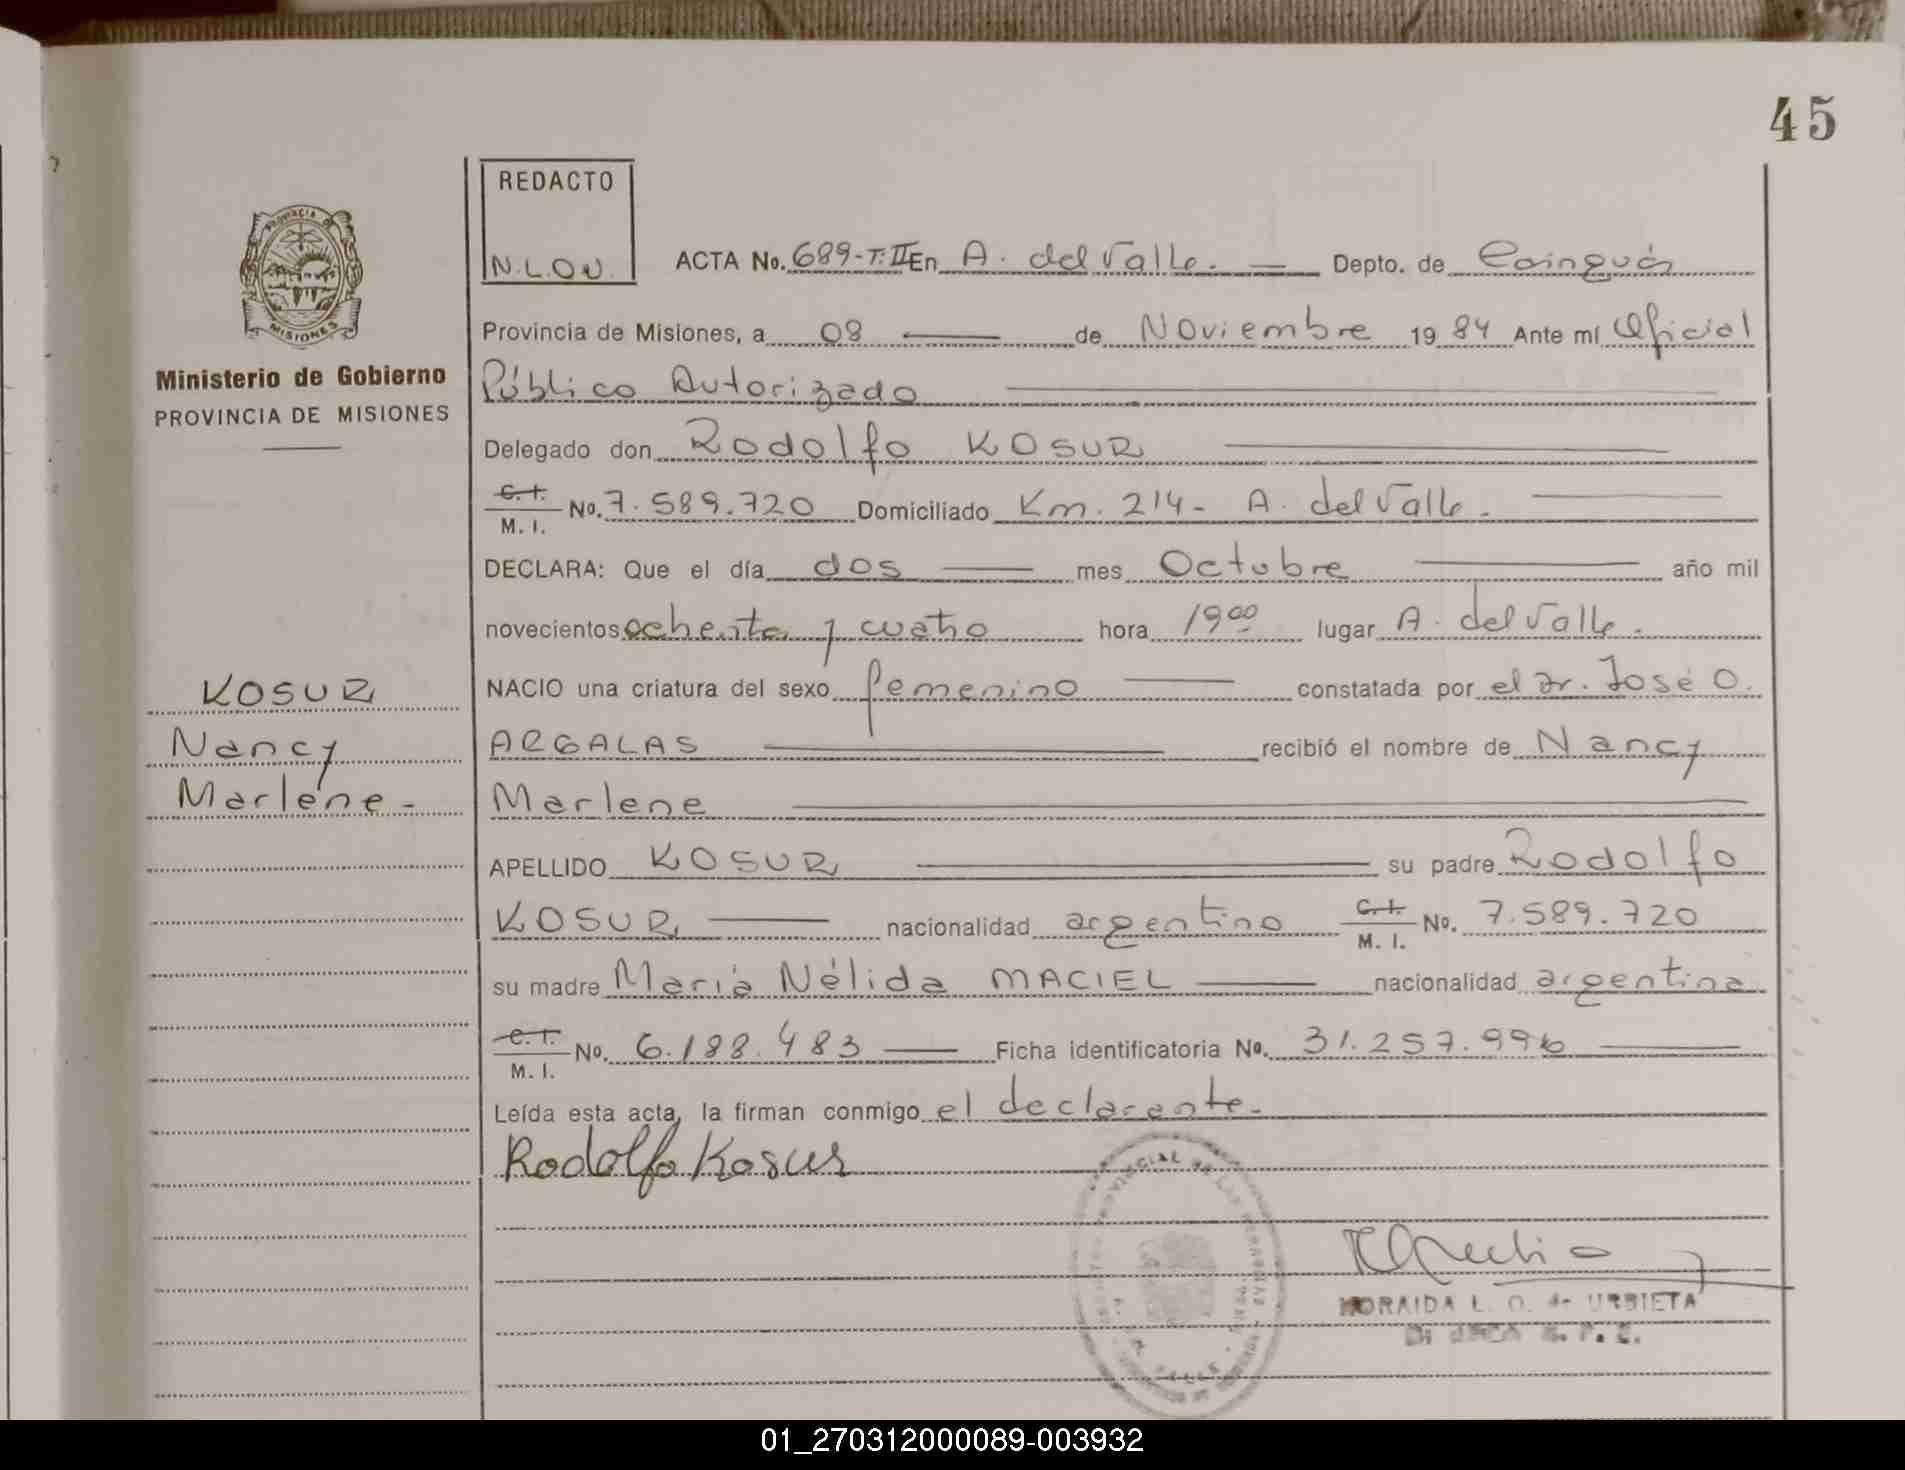 45
REDACTO
N.L.O.U.
ACTA No. 689-T.II En A. del Valle. Depto. de Cainguás
Provincia de Misiones, a 08 de Noviembre 1984 Ante mí Oficial
Ministerio de Gobierno
PROVINCIA DE MISIONES
Público Autorizado
Delegado don Rodolfo KOSUR
C.I. M.I. No. 7.589.720 Domiciliado Km. 214- A. del Valle.
DECLARA: Que el día dos mes Octubre año mil
novecientos ochenta y cuatro hora 19 00 lugar A. del Valle.
NACIO una criatura del sexo femenino constatada por el Dr. José O.
KOSUR
Nancy
Marlene-
ARGALAS recibió el nombre de Nancy
Marlene
APELLIDO KOSUR su padre Rodolfo
KOSUR nacionalidad argentino C.I. M.I. No. 7.589.720
su madre María Nélida MACIEL nacionalidad argentina
C.I. M.I. No. 6.188.483 Ficha identificatoria No. 31.257.996
Leída esta acta, la firman conmigo el declarante.
Rodolfo Kosur
NORAIDA L. O. de URBIETA
01_270312000089-003932